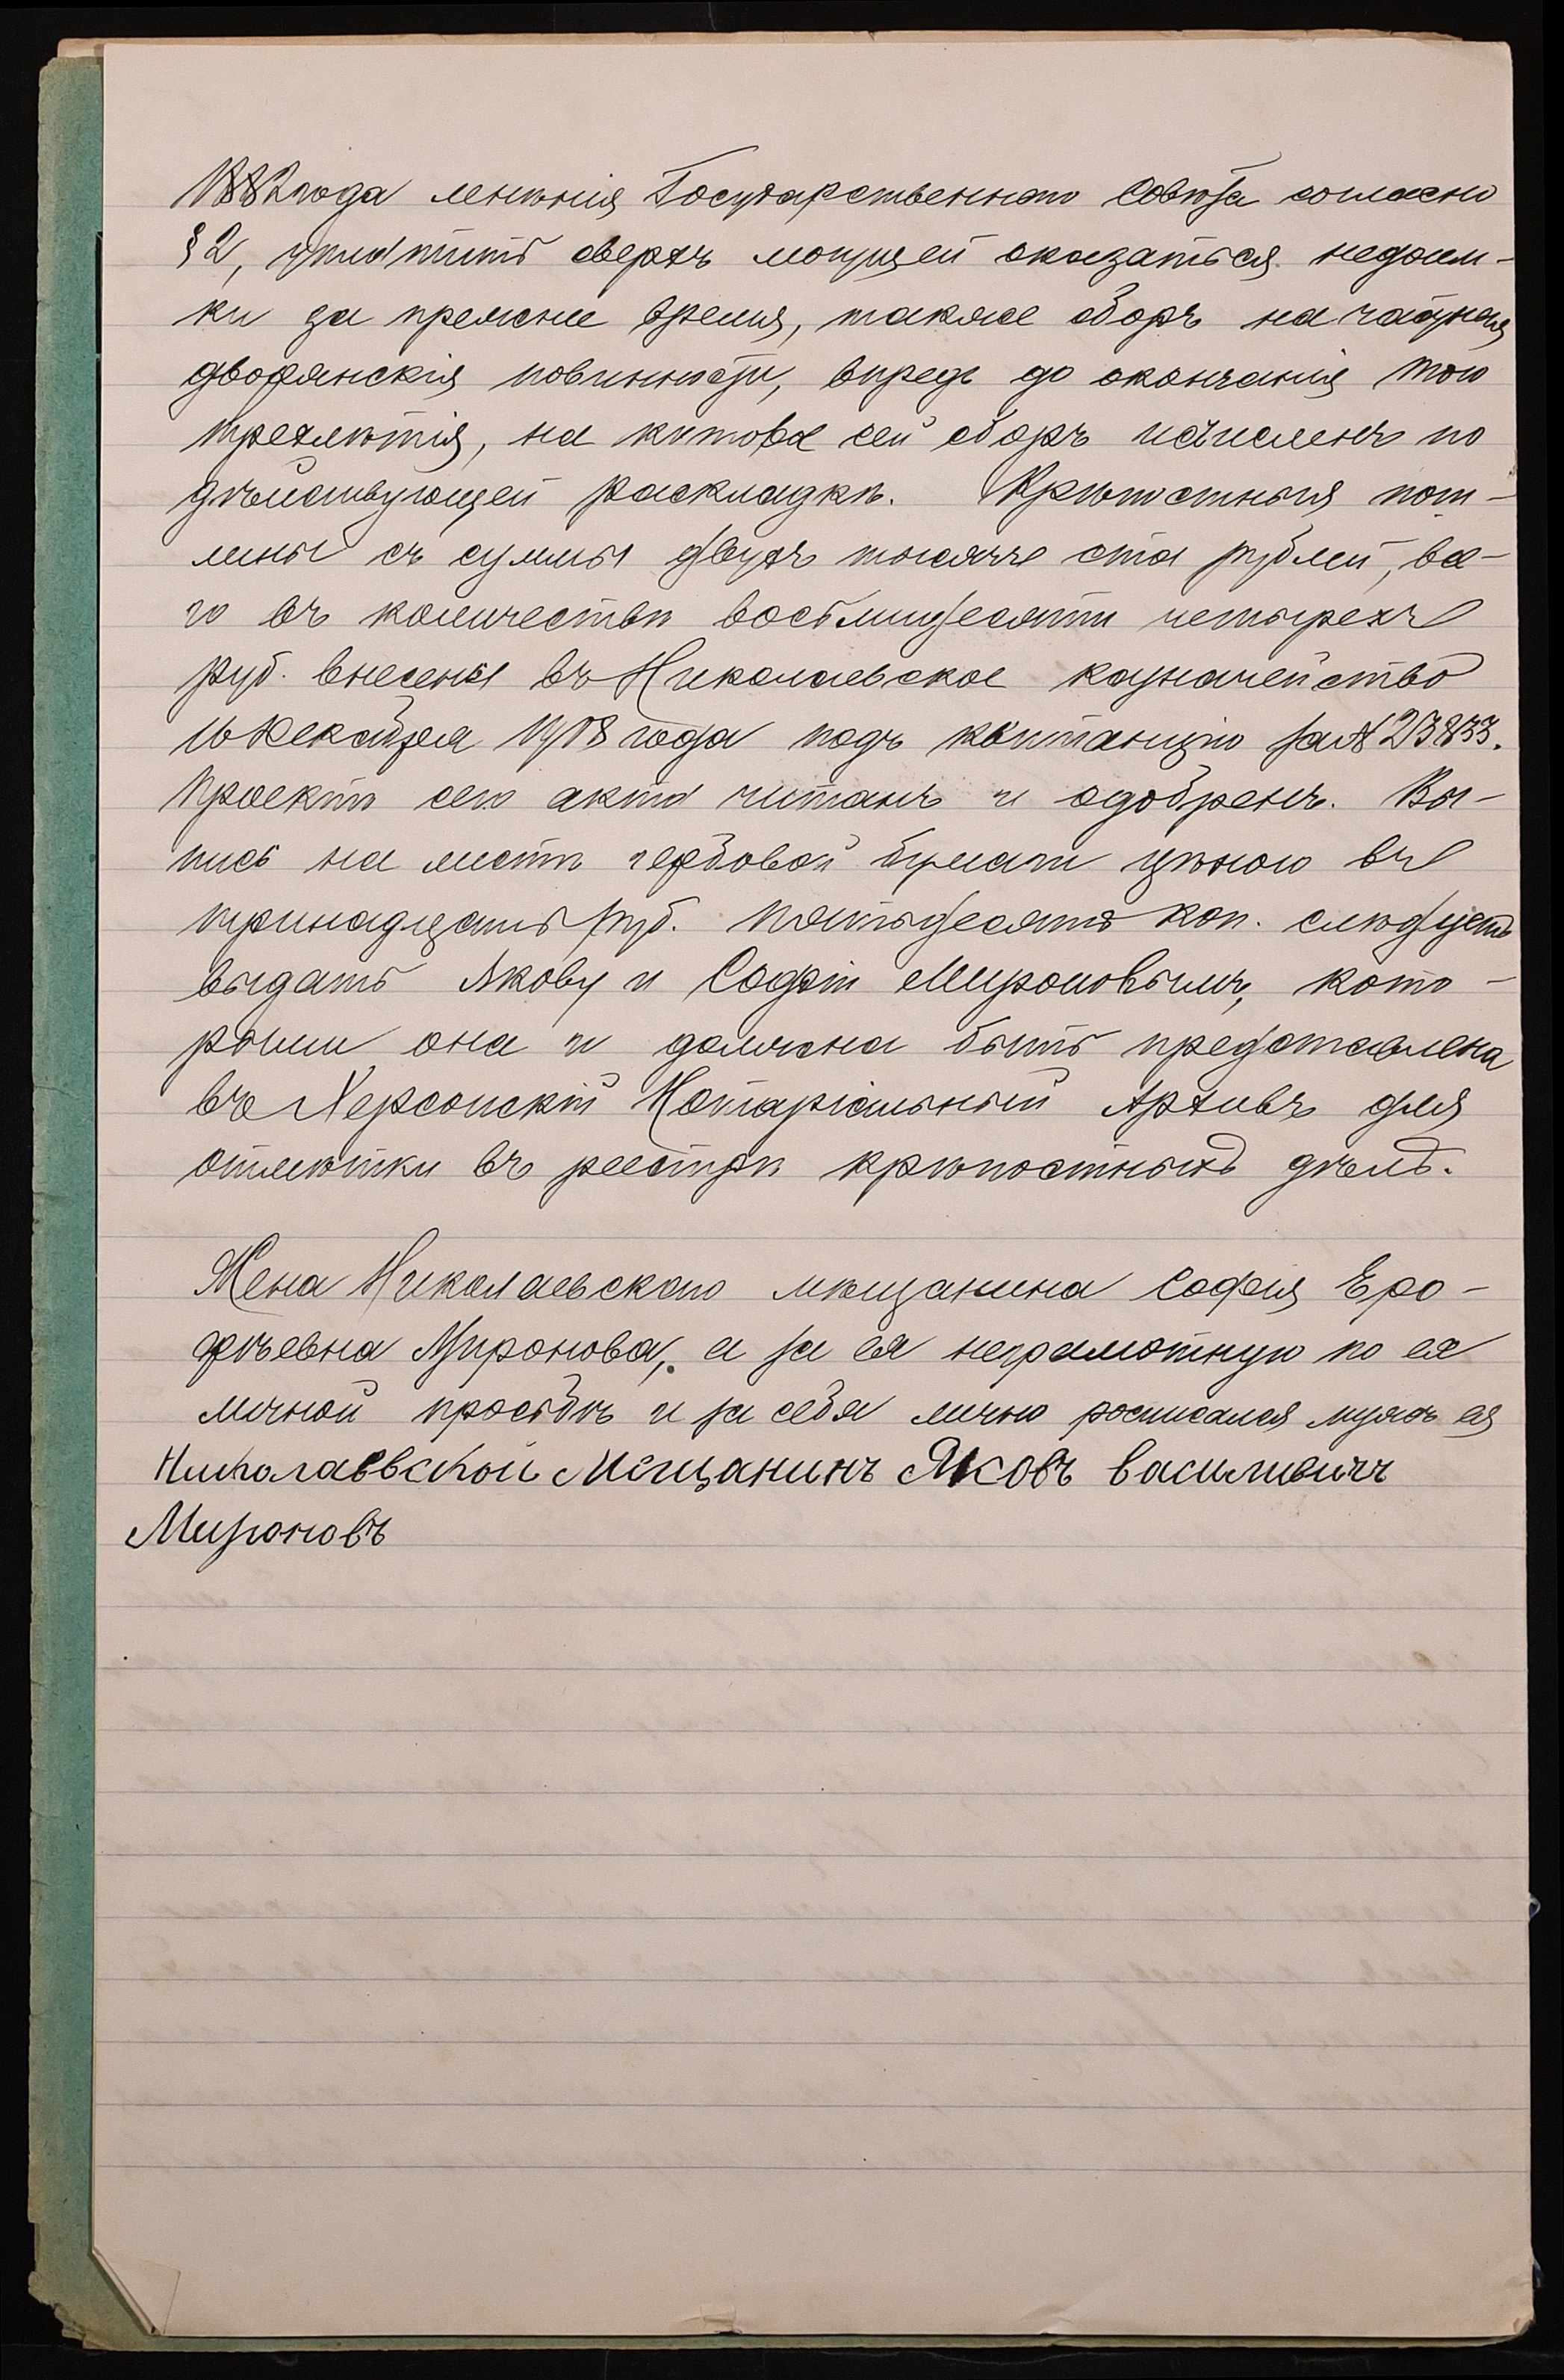 1882 года мнѣнія Государственнаго Совѣта согласно
§ 2, уплатить сверхъ могущей оказаться недоим-
ки за прежнее время, также сборъ на частныя
дворянскія повинности, впредь до окончанія того
трехлѣтія, на которое сей сборъ исчисленъ по
дѣйствующей раскладкѣ. Крѣпостныя пош-
лины съ суммы двухъ тысячъ ста рублей, все-
го въ количествѣ восьмидесяти четырехъ
руб. внесены въ Николаевское казначейство
16 Декабря 1908 года подъ квитанцію за № 23833.
Проектъ сего акта читанъ и одобренъ. Вы-
пись на листѣ гербовой бумаги цѣною въ
тринадцать руб. пятьдесятъ коп. слѣдуетъ
выдать Якову и Софіи Мироновымъ, кото-
рыми она и должна быть представлена
въ Херсонскій Нотаріальный Архивъ для
отмѣтки въ реестрѣ крѣпостныхъ дѣлъ.
Жена Николаевскаго мѣщанина Софія Еро-
фѣевна Миронова, а за ея неграмотную по ея
личной просьбѣ и за себя лично росписался мужъ ея
Николаевской Мещанинъ Яковъ Василиевичъ
Мироновъ